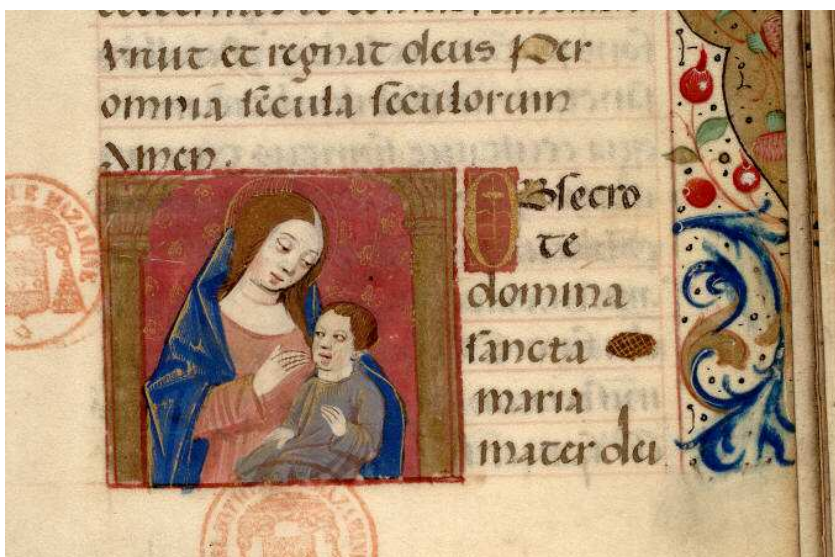 vivit et regnat deus Per
omnia secula seculorum
Amen.
OBsecro
te
domina
sancta
maria
mater dei